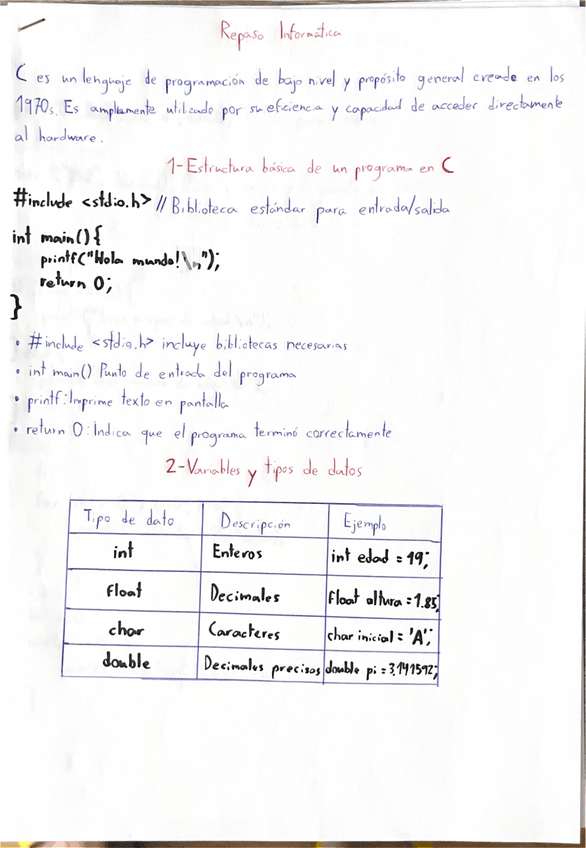 Repaso Informática
C es un lenguaje de programación de bajo nivel y propósito general creado en los
1970s. Es ampliamente utilizado por su eficiencia y capacidad de acceder directamente
al hardware.
1-Estructura básica de un programa en C
#include <stdio.h> // Biblioteca estándar para entrada/salida
int main(){
printf("Hola mundo!\n");
return 0;
}
• #include <stdio.h> incluye bibliotecas necesarias
• int main() Punto de entrada del programa
• printf: Imprime texto en pantalla
• return 0: Indica que el programa terminó correctamente
2-Variables y tipos de datos
Tipo de dato Descripción Ejemplo
int Enteros int edad = 19;
float Decimales float altura = 1.85;
char Caracteres char inicial = 'A';
double Decimales precisos double pi = 3.141592;